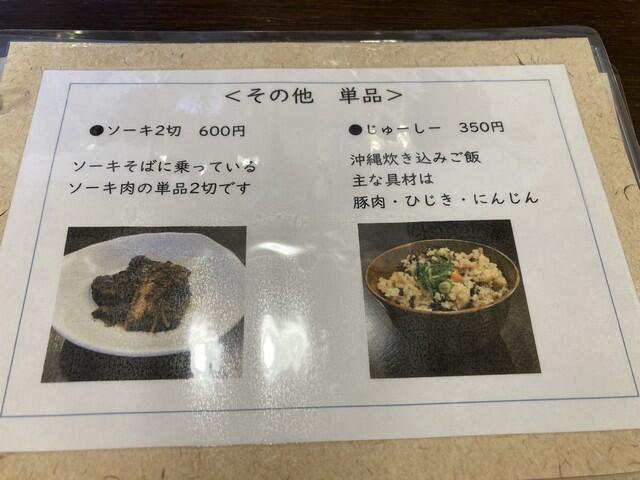 ＜その他　単品＞
●ソーキ2切　600円
ソーキそばに乗っている
ソーキ肉の単品2切です
●じゅーしー　350円
沖縄炊き込みご飯
主な具材は
豚肉・ひじき・にんじん